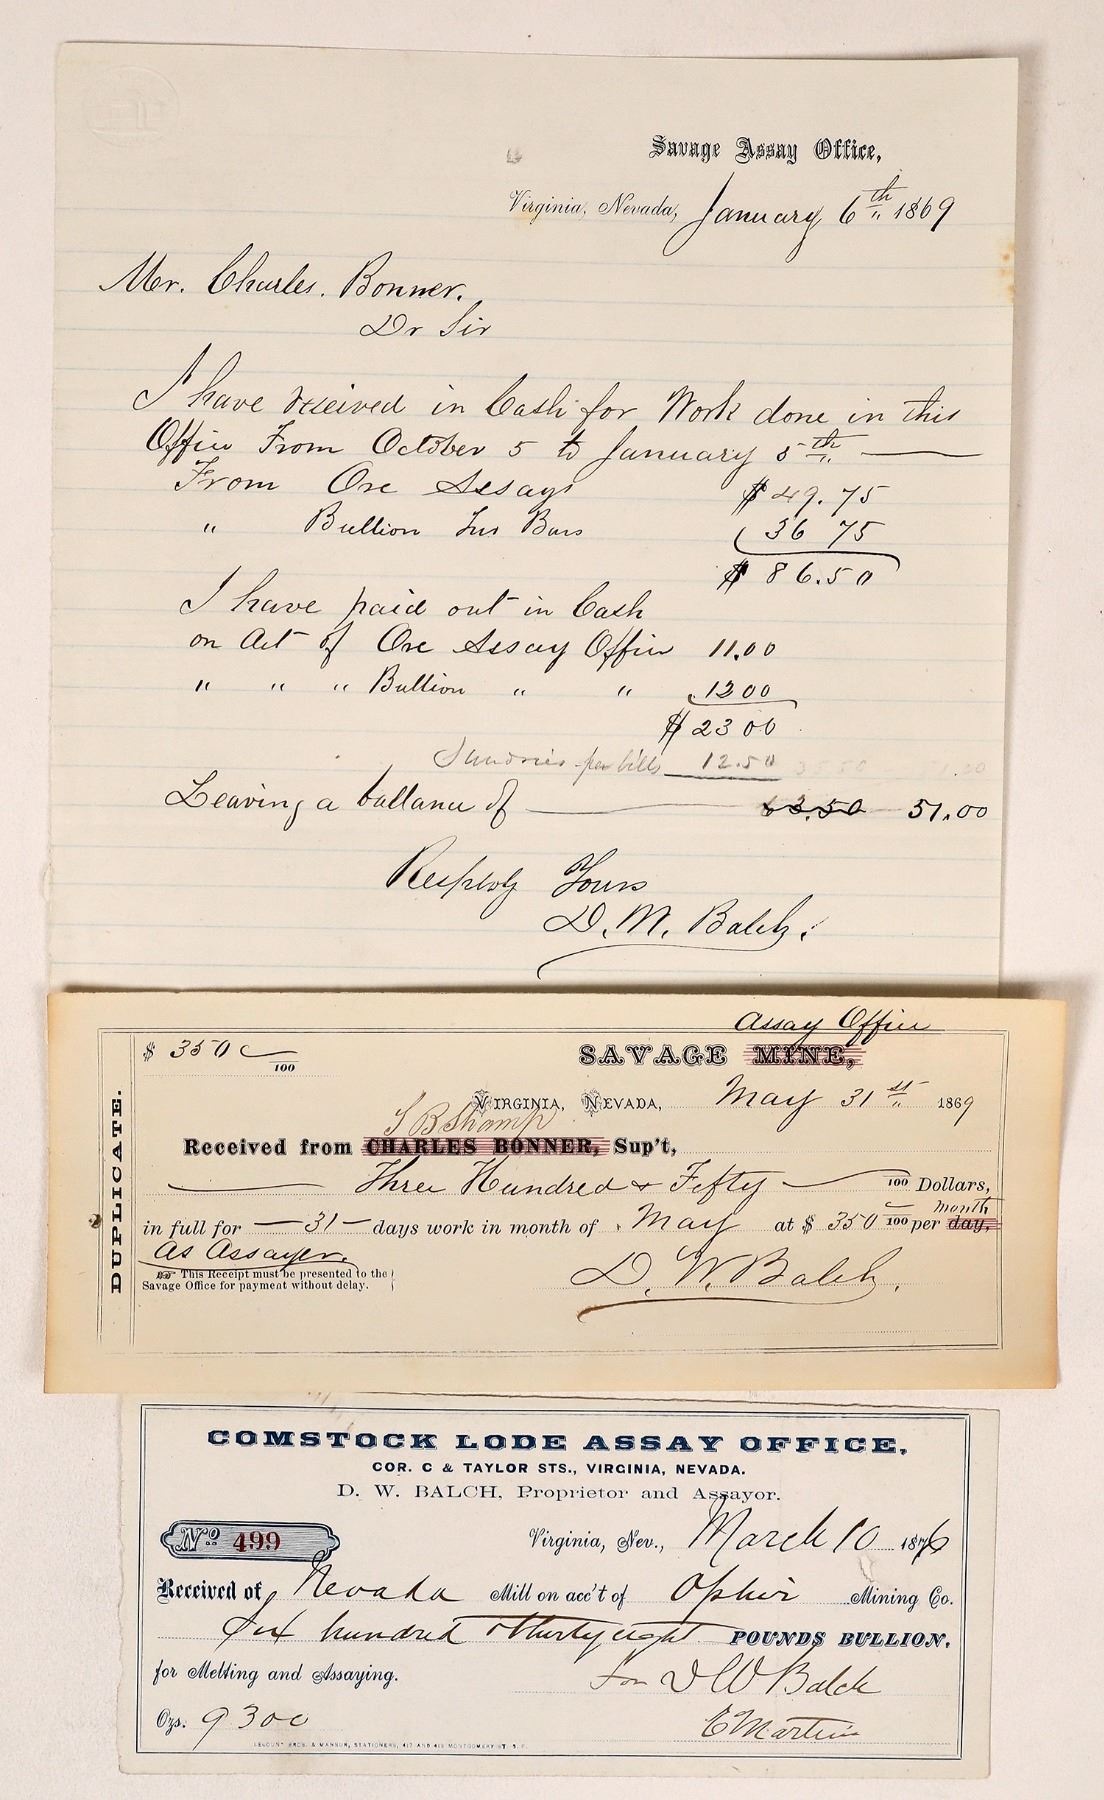 Savage Assay Office,
Virginia, Nevada, January 6th 1869
Mr. Charles. Bonner.
Dr Sir
I have received in Cash for Work done in this
Office From October 5 to January 5th
From Ore Assays $49.75
" Bullion Bars 36 75
$86.50
I have paid out in Cash
on Act of Ore Assay Office 11.00
" " " Bullion " " 12 00
$23 00
Sundries per bills 12.50
Leaving a ballance of 63.50 51.00
Resptly Yours
D. M. Balch.
Assay Office
$ 350 /100 SAVAGE MINE,
VIRGINIA, NEVADA, May 31st 1869
Received from CHARLES BONNER, Sup't,
Three Hundred & Fifty /100 Dollars,
month
in full for 31 days work in month of May at $ 350 /100 per day,
As Assayer.
This Receipt must be presented to the
Savage Office for payment without delay.
D. W. Balch.
DUPLICATE.
COMSTOCK LODE ASSAY OFFICE,
COR. C & TAYLOR STS., VIRGINIA, NEVADA.
D. W. BALCH, Proprietor and Assayor.
No 499 Virginia, Nev., March 10 1876
Received of Nevada Mill on acc't of Ophir Mining Co.
Six hundred & thirty eight POUNDS BULLION,
for Melting and Assaying. For D W Balch
Ozs. 9300 E Martin